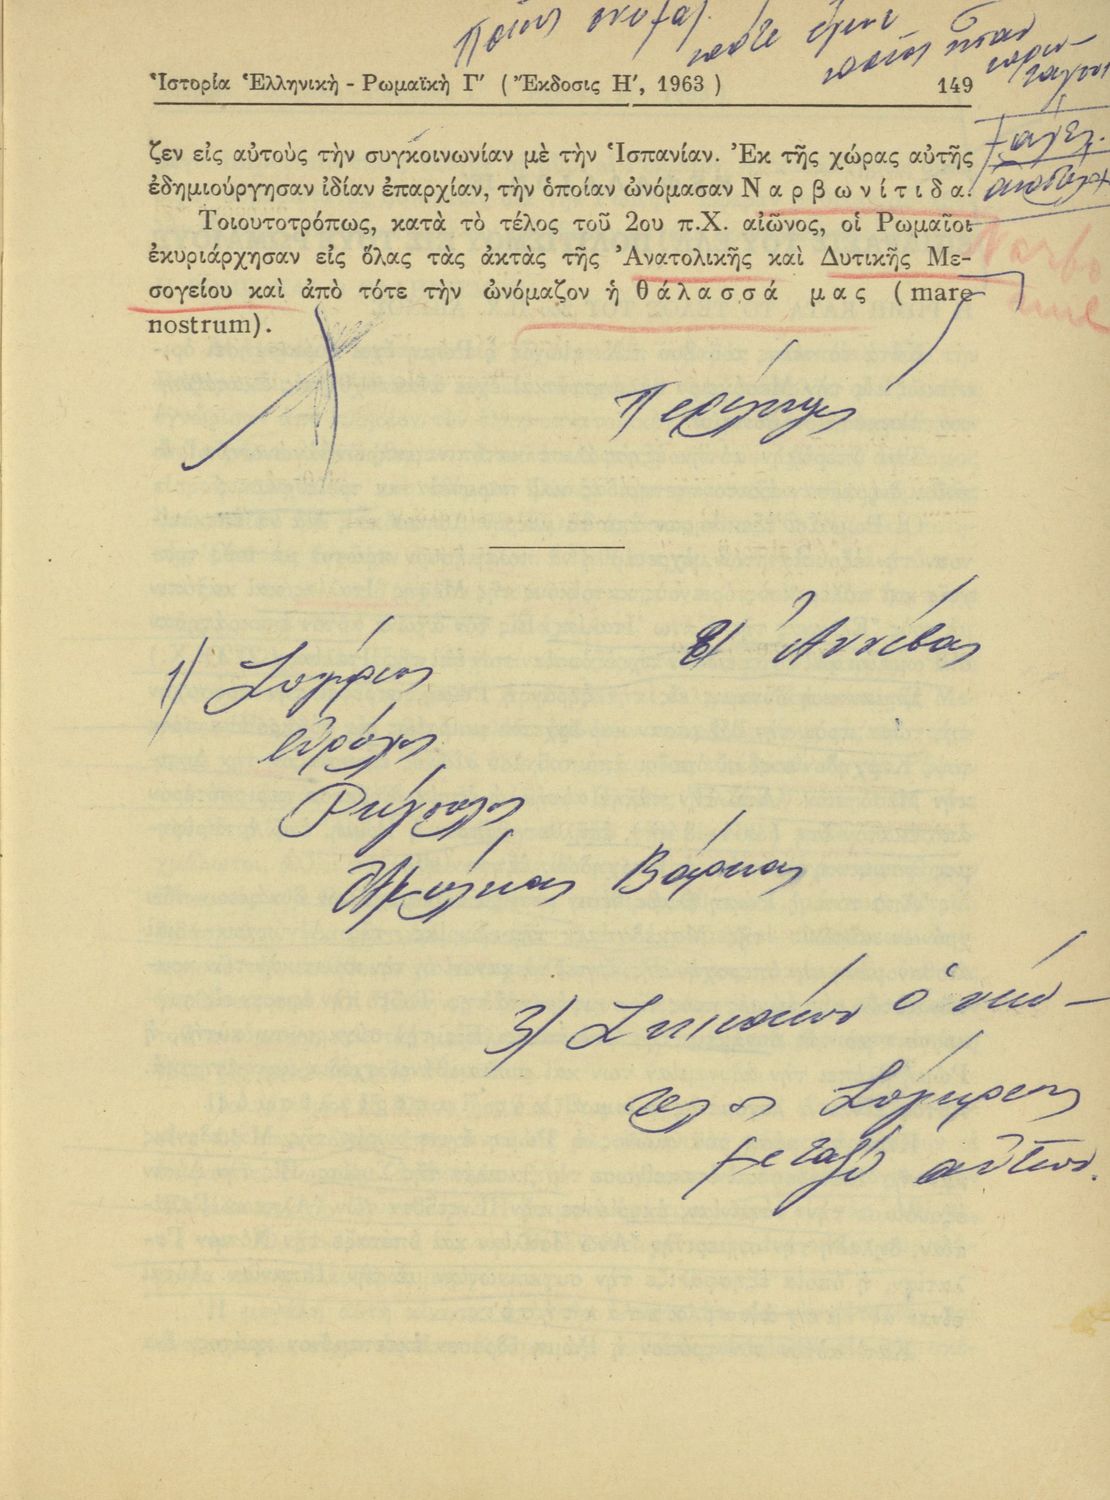 πότε ἔγινε
ποῖος ἦταν
Ἱστορία Ἑλληνικὴ - Ρωμαϊκὴ Γ′ ( Ἔκδοσις Η′, 1963 )
149
ζεν εἰς αὐτοὺς τὴν συγκοινωνίαν μὲ τὴν Ἱσπανίαν. Ἐκ τῆς χώρας αὐτῆς
ἐδημιούργησαν ἰδίαν ἐπαρχίαν, τὴν ὁποίαν ὠνόμασαν Ν α ρ β ω ν ί τ ι δ α.
Τοιουτοτρόπως, κατὰ τὸ τέλος τοῦ 2ου π.Χ. αἰῶνος, οἱ Ρωμαῖοι
ἐκυριάρχησαν εἰς ὅλας τὰς ἀκτὰς τῆς Ἀνατολικῆς καὶ Δυτικῆς Με-
σογείου καὶ ἀπὸ τότε τὴν ὠνόμαζον ἡ θ ά λ α σ σ ά μ α ς ( mare
nostrum).
Narbo
nne
Περίληψις
2) Ἀννίβας
1)
Ἀμίλκας Βάρκας
3) Σκιπίων ὁ νεώ-
τερος
μεταξὺ αὐτῶν.